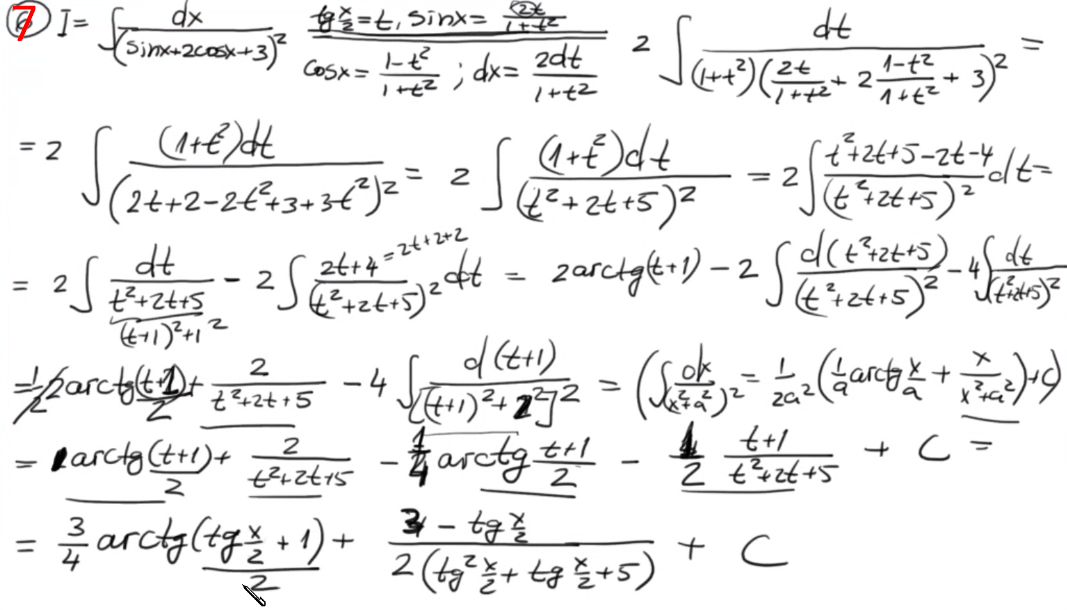 7 I = ∫ dx/(sinx+2cosx+3)² tg x/2 = t, sinx = 2t/(1+t²) 2 ∫ dt/((1+t²)(2t/(1+t²) + 2 (1-t²)/(1+t²) + 3)²) =
cosx = (1-t²)/(1+t²) ; dx = 2dt/(1+t²)
= 2 ∫ (1+t²)dt/(2t+2-2t²+3+3t²)² = 2 ∫ (1+t²)dt/(t²+2t+5)² = 2 ∫ (t²+2t+5-2t-4)/(t²+2t+5)² dt =
= 2 ∫ dt/(t²+2t+5) - 2 ∫ (2t+4)/(t²+2t+5)² dt = 2arctg(t+1) - 2 ∫ d(t²+2t+5)/(t²+2t+5)² - 4 ∫ dt/(t²+2t+5)²
(t+1)²+1² = 2t+2+2
= 1/2 2arctg (t+1)/2 + 2/(t²+2t+5) - 4 ∫ d(t+1)/[(t+1)²+2²]² = (∫ dx/(x²+a²)² = 1/2a² (1/a arctg x/a + x/(x²+a²)) + C)
= arctg (t+1)/2 + 2/(t²+2t+5) - 1/4 arctg (t+1)/2 - 1/2 (t+1)/(t²+2t+5) + C =
= 3/4 arctg (tg x/2 + 1)/2 + (3 - tg x/2)/(2(tg² x/2 + tg x/2 + 5)) + C